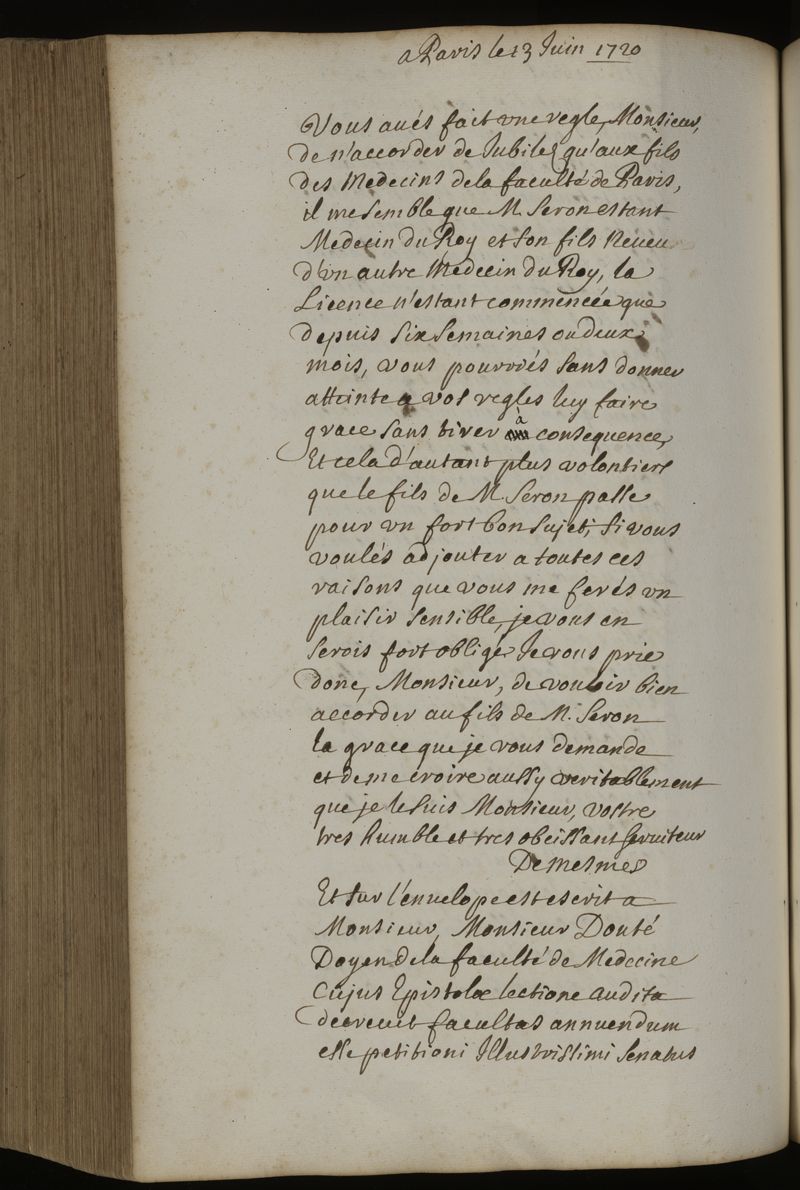 a Paris le 13 Juin 1720
Vous aués fait vne regle, Monsieur,
de n'accorder de Jubilez qu'aux fils
des Medecins de la faculté de Paris,
il me semble que M. Seron estant
Medecin du Roy et son fils Neueu
d'vn autre Medecin du Roy, la
Licence n'estant commencée que
depuis six semaines ou deux
mois, vous pourrés sans donner
attinte a vos regles luy faire
grace sans tirer à consequence,
Et cela d'autant plus volontiers
que le fils de M. Seron passe
pour vn fort bon sujet, si vous
voulés adjouter a toutes ces
raisons que vous me ferés vn
plaisir sensible, je vous en
serois fort obligé Je vous prie
donc, Monsieur, de vouloir bien
accorder au fils de M. Seron
la grace que je vous demande
et de me croire aussy veritablement
que je le suis Monsieur, vostre
tres humble et tres obeissant seruiteur
De mesmes
Et sur l'enuelope est escrit a
Monsieur, Monsieur Douté
Doyen de la faculté de Medecine
Cujus Epistolæ lectione audita
decreuit facultas annuendum
esse petitioni Illustrissimi Senatus